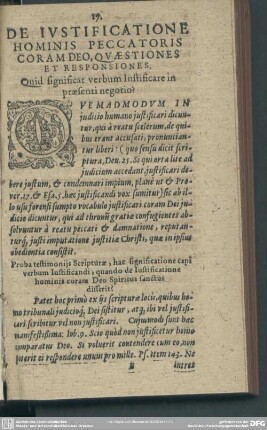 19.
DE IVSTIFICATIONE
HOMINIS PECCATORIS
CORAM DEO, QVÆSTIONES
ET RESPONSIONES.
Quid significat verbum Iustificare in
præsenti negotio?
QVEMADMODVM IN
iudicio humano iustificari dicuntur,
qui à reatu scelerum, de quibus
erant accusati, pronuntiantur
liberi: (quo sensu dicit scriptura,
Deu. 25. Si qui orta lite ad
iudicium accedant, iustificari debere
iustum, & condemnari impium, planè ut & Prouer.
17. & Esa. 5. hæc iustificandi vox sumitur) sic ab illo
usu forensi sumpto vocabulo iustificari coram Dei iudicio
dicuntur, qui ad thronũ gratiæ confugientes absolvuntur
à reatu peccati & damnatione, reputanturq́;
justi imputatione justitiæ Christi, quæ in ipsius
obedientia consistit.
Proba testimonijs Scripturæ, hac significatione capi
verbum Iustificandi, quando de Iustificatione
hominis coram Deo Spiritus sanctus
disserit?
Patet hoc primò ex ijs scripturæ locis, quibus homo
tribunali judicioq́; Dei sistitur, atq; ibi vel justificari
scribitur vel non justificari. Cujusmodi sunt hæc
manifestissima: Iob. 9. Scio quòd non justificetur homo
comparatus Deo. Si voluerit contendere cum eo, non
poterit ei respondere unum pro mille. Ps. item 143. Ne
B intres